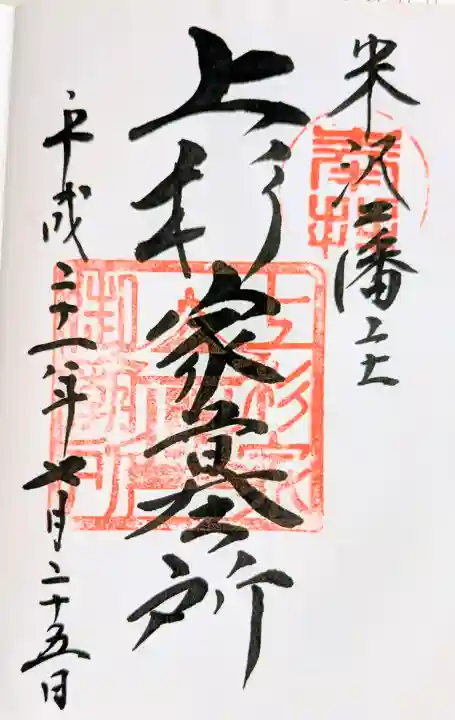 米沢藩主
上杉家墓所
平成二十一年七月二十五日
奉拝
上杉家
御廟所